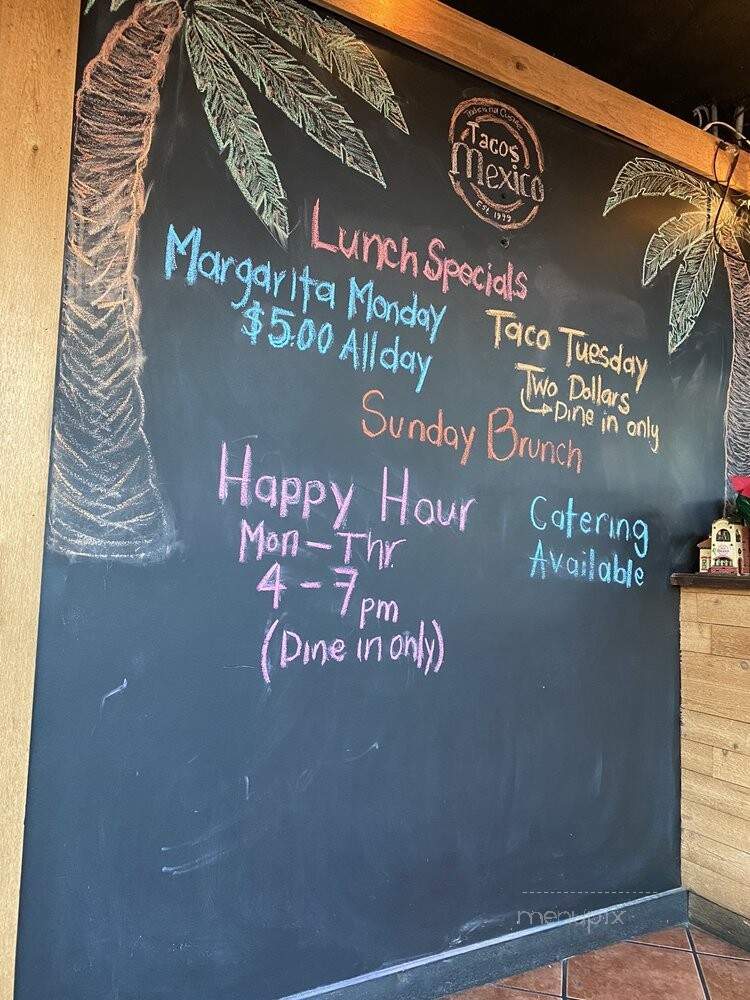 Traditional Cuisine
Tacos
Mexico
EST 1999
Lunch Specials
Margarita Monday
$5.00 All day
Taco Tuesday
Two Dollars
Dine in only
Sunday Brunch
Happy Hour
Mon - Thr
4 - 7 pm
(Dine in only)
Catering
Available
menupix